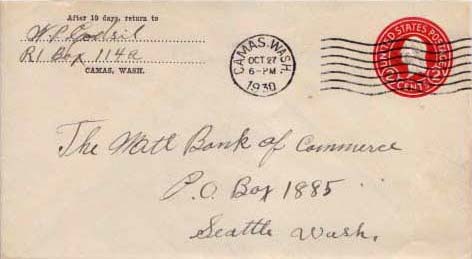 After 10 days, return to
W. P. Godsil
R1 Box 114a
CAMAS, WASH.
CAMAS, WASH.
OCT 27
6-PM
1930
UNITED STATES POSTAGE
2 CENTS 2
The Natl Bank of Commerce
P.O. Box 1885
Seattle Wash.